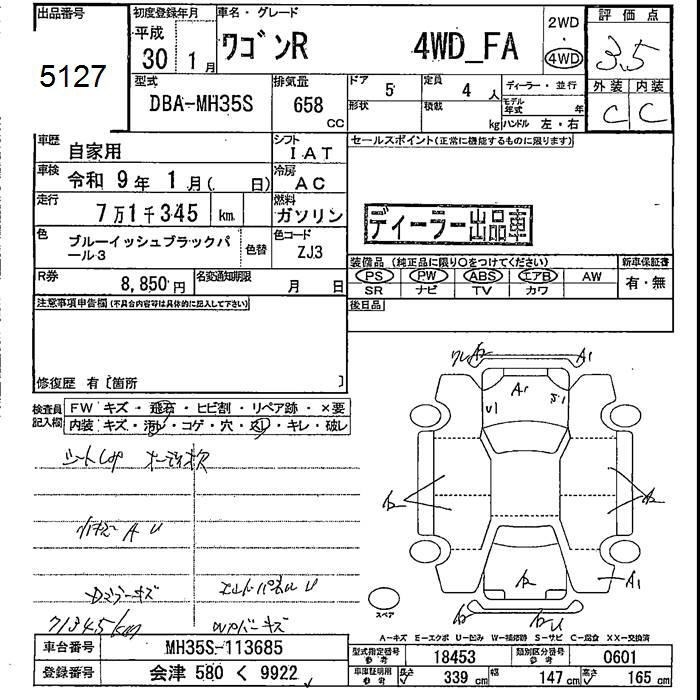 出品番号
5127
初度登録年月
平成
30 1月
車名・グレード
ワゴンR 4WD_FA
2WD
4WD
評価点
3.5
外装 内装
C C
型式
DBA-MH35S
排気量
658
CC
ドア 5
定員 4 人
形状
積載 kg
ディーラー・並行
モデル年式 年
ハンドル 左・右
車歴
自家用
シフト
IAT
車検
令和 9年 1月( 日)
冷房
AC
走行
7万1千345 km
燃料
ガソリン
色
ブルーイッシュブラックパール3
色替
色コード
ZJ3
R券
8,850円
名変通知期限
月 日
セールスポイント(正常に機能するものに限ります)
ディーラー出品車
装備品(純正品に限り○をつけてください)
新車保証書
PS PW ABS エアB AW
有・無
SR ナビ TV カワ
後日品
注意事項申告欄(不具合内容等は具体的に記入して下さい)
修復歴 有〔箇所 〕
検査員
記入欄
FW キズ・飛石・ヒビ割・リペア跡・×要
内装 キズ・汚レ・コゲ・穴・スレ・キレ・破レ
A1
A1
U1
A2
A2
A1
A2
スペア
71345km
A-キズ E-エクボ U-凹み W-補修跡 S-サビ C-腐食 XX-交換済
車台番号
MH35S-113685
登録番号
会津 580 く 9922
型式指定番号
参考
18453
類別区分番号
参考
0601
車庫証明用
参考
長さ 339 cm
幅 147 cm
高さ 165 cm